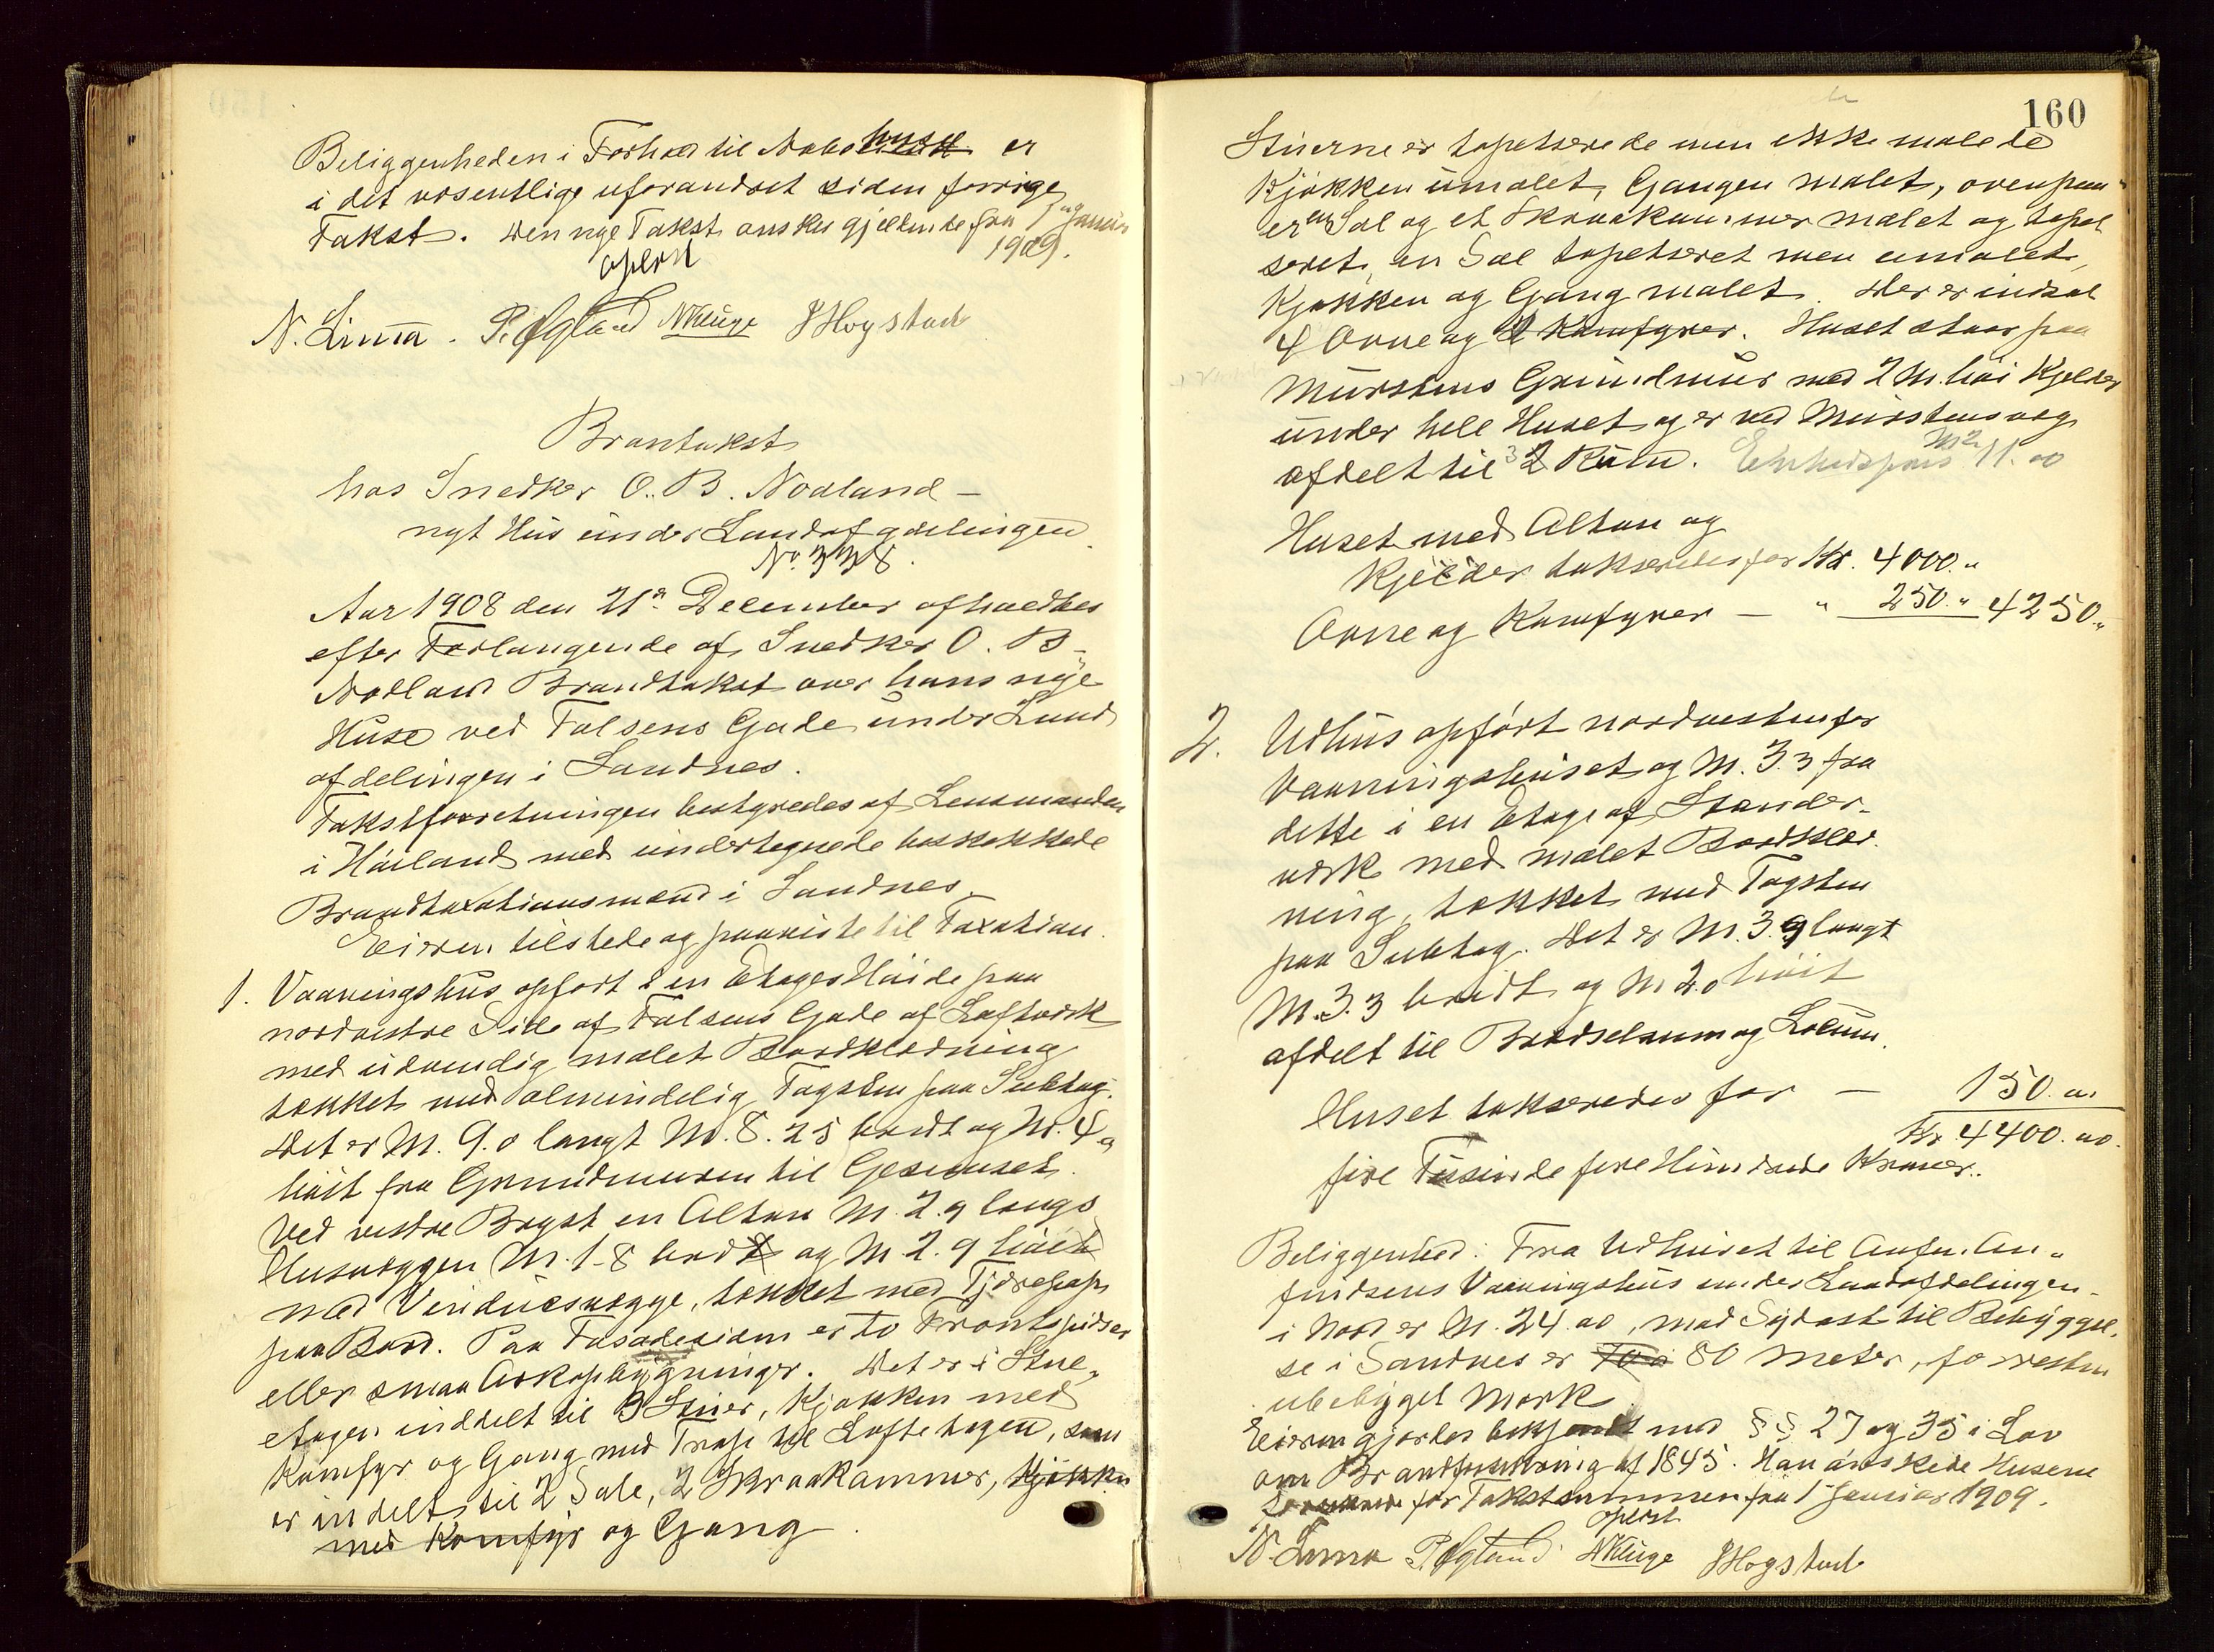 Beliggenheden i Forhold til Nabohuse er
i det væsentlige uforandret siden forrige
Takst. Den nye Takst ønskes gjeldende fra 1 Januar
1909.
oplæst
N. Lima. P. Øgland NKluge JHogstad
Brantakst
hos Snedker O. B. Nodland –
nyt Hus under Landafgdelingen
No. 338.
Aar 1908 den 21de December afholdtes
efter Forlangende af Snedker O. B.
Nodland Brandtakst over hans nye
Huse ved Falsens Gade under Land
afdelingen i Sandnes.
Takstforretningen bestyredes af Lensmanden
i Høiland med undertegnede beskikkede
Brandtaxationsmænd i Sandnes.
Eieren tilstede og paaviste til Taxation.
1. Vaaningshus opført i en Etages Høide paa
nordvestre Side af Falsens Gade af Laftværk
med udvendig malet Bordklædning
tækket med almindelig Tagsten paa Subtag.
Det er M. 9.0 langt M. 8.25 bredt og M. 4.
høit fra Grundmuren til Gesimset.
Ved vestre Bryst en Altan M. 2.9 langs
Husvæggen M. 1.8 bredt og M 2.9 høit
med Vinduesvægge, tækket med Tjærepap
paa Bord. Paa Fasadesiden er to Frontspidser
eller smaa Arkopbygninger. Det er i Stue-
etagen inddelt til 3 Stuer, Kjøkken med
Komfyr og Gang med Trap til Loftetagen, som
er indelt til 2 Sale, 2 Skraakammer, Kjøkken
med Komfyr og Gang.
160
Stuerne er tapetserede men ikke malede
Kjøkken umalet, Gangen malet, ovenpaa
er en Sal og et Skraakammer malet og tapet
seret, en Sal tapetseret men umalet,
Kjøkken og Gang malet. Der er indsat
4 Ovne og 2 Komfyrer. Huset staar paa
Murstens Grundmur med 2 M. høi Kjelder
under hele Huset og er ved Murstensvæg
afdelt til 3 2 Rum. Enhedspris M2 11.00
Huset med Altan og
Kjelder takseredes for Kr. 4000.„
Ovne og Komfyrer — „ 250.„ 4250.„
2. Udhus opført nordvestenfor
Vaaningshuset og M. 3.3 fra
dette i en Etage af Stander-
værk med malet Bordklæd
ning, tækket med Tagsten
paa Subtag. Det er M. 3.9 langt
M. 3.3 bredt og M 2.0 høit
afdelt til Brædselrum og Lokum.
Huset takseredes for — 150.00
Kr. 4400.00.
fire Tusinde fire Hundrede Kroner.
Beliggenhed: Fra Udhuset til An-
findsens Vaaningshus under Landafdelingen
i Nord er M. 24.00, mod Sydost til Bebyggel-
se i Sandnes er 80 Meter, forresten
ubebygget Mark.
Eieren gjordes bekjendt med §§ 27 og 35 i Lov
om Brandforsikring af 1845. Han ønskede Husene
for Takstsummen fra 1 Januar 1909.
oplæst
N. Lima P. Øgland NKluge JHogstad